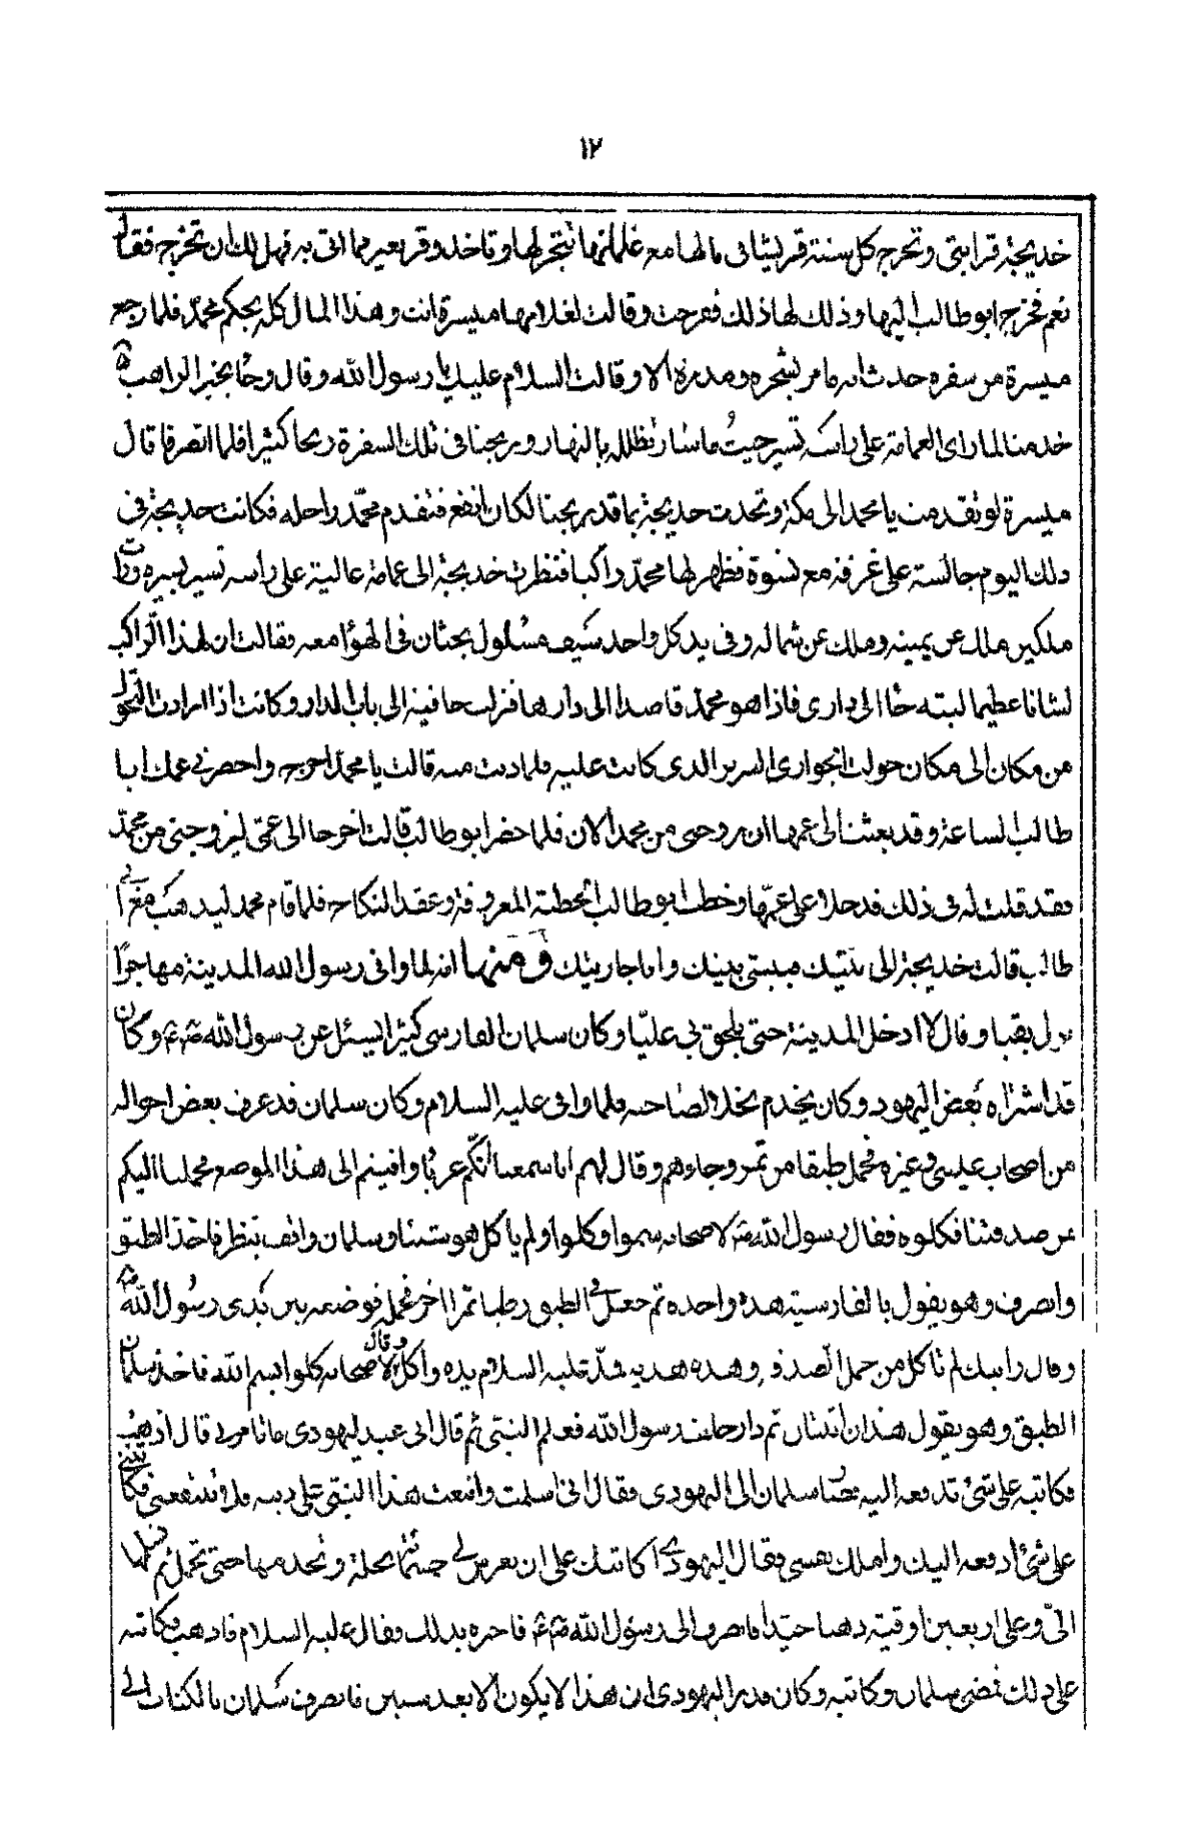 ١٢
خديجة قرابتى وتخرج كل سنة قريشا فى مالها مع غلمانها يتجر لها وتاخذ وقر بعير مما اتى به فهل لك ان تخرج فقال
نعم فخرج ابو طالب اليها وذلك لها ذلك ففرحت وقالت لغلامها ميسرة انت وهذا المال كله بحكم محمد فلما رجع
ميسرة من سفره حدث انه مامر بشجره ومدره الا وقالت السلام عليك يا رسول الله وقال وجا بحيرا الراهب
خدمنا لما راى الغمامة على راسه تسير حيث ما سار تظلله بالنهار وربحنا فى تلك السفرة ربحا كثيرا فلما انصرفا قال
ميسرة لو تقدمت يا محمد الى مكة وتحدث خديجة بما قد ربحنا لكان انفع فتقدم محمد راحله فكانت خديجة فى
ذلك اليوم جالسة على غرفة مع نسوة فظهر لها محمد راكبا فنظرت خديجة الى غمامة عالية على راسه تسير بسيره ورات
ملكين ملك عن يمينه وملك عن شماله وفى يد كل واحد سيف مسلول يجئان فى الهواء معه فقالت ان لهذا الراكب
لشانا عظيما ليته جاء الى دارى فاذا هو محمد قاصدا الى دارها فنزلت حافية الى باب الدار وكانت اذا ارادت التحول
من مكان الى مكان حولت الجوارى السرير الذى كانت عليه فلما دنت منه قالت يا محمد اخرج واحضرنى عمك ابا
طالب الساعة وقد بعثت الى عمها ان زوجنى من محمد الان فلما حضر ابو طالب قالت اخرجا الى عمى ليزوجنى من محمد
فقد قلت له فى ذلك فدخلا على عمها وخطب ابو طالب الخطبة المعروفة وعقد النكاح فلما قام محمد ليذهب مع ابى
طالب قالت خديجة الى بيتك فبيتى بيتك وانا جاريتك ومنها انه لما وافى رسول الله المدينة مهاجرا
نزل بقبا وقال لا ادخل المدينة حتى يلحق بى عليا وكان سلمان الفارسى كثيرا يسئل عن رسول الله وكان
قد اشتراه بعض اليهود وكان يخدم نخلا لصاحبه فلما وافى عليه السلام وكان سلمان قد عرف بعض احواله
من اصحاب عيسى وغيره فحمل طبقا من تمر وجاءهم وقال لهم انا سمعنا انكم غرباء وافيتم الى هذا الموضع فحملنا اليكم
من صدقتنا فكلوه فقال رسول الله لاصحابه سموا وكلوا ولم ياكل هو شيئا وسلمان واقف ينظر فاخذ الطبق
وانصرف وهو يقول بالفارسية هذه واحدة ثم جعل فى الطبق رطبا تمرا اخر فحمله فوضعه بين يدى رسول الله
وقال رايتك لم تاكل من تمر الصدقة وهذه هدية فمد عليه السلام يده واكل وقال لاصحابه كلوا بسم الله فاخذ سلمان
الطبق وهو يقول هذان اثنان ثم دار خلف رسول الله فعلم النبى ثم قال انى عبد ليهودى ما تامرنى قال اذهب
فكاتبه على شئ تدفعه اليه فمضا سلمان الى اليهودى فقال انى اسلمت واتبعت هذا النبى على دينه فلا تنتفع بى فكاتبنى
على شئ ادفعه اليك واملك نفسى فقال اليهودى اكاتبك على ان تغرس لى خمسمائة نخلة وتخدمها حتى تحمل ثم تسلمها
الى وعلى اربعين اوقية ذهبا جيدا فانصرف الى رسول الله فاخبره بذلك فقال عليه السلام فاذهب فكاتبه
على ذلك فمضى سلمان وكاتبه وكان قدر اليهودى ان هذا لا يكون الا بعد سنين فانصرف سلمان بالكتاب الى